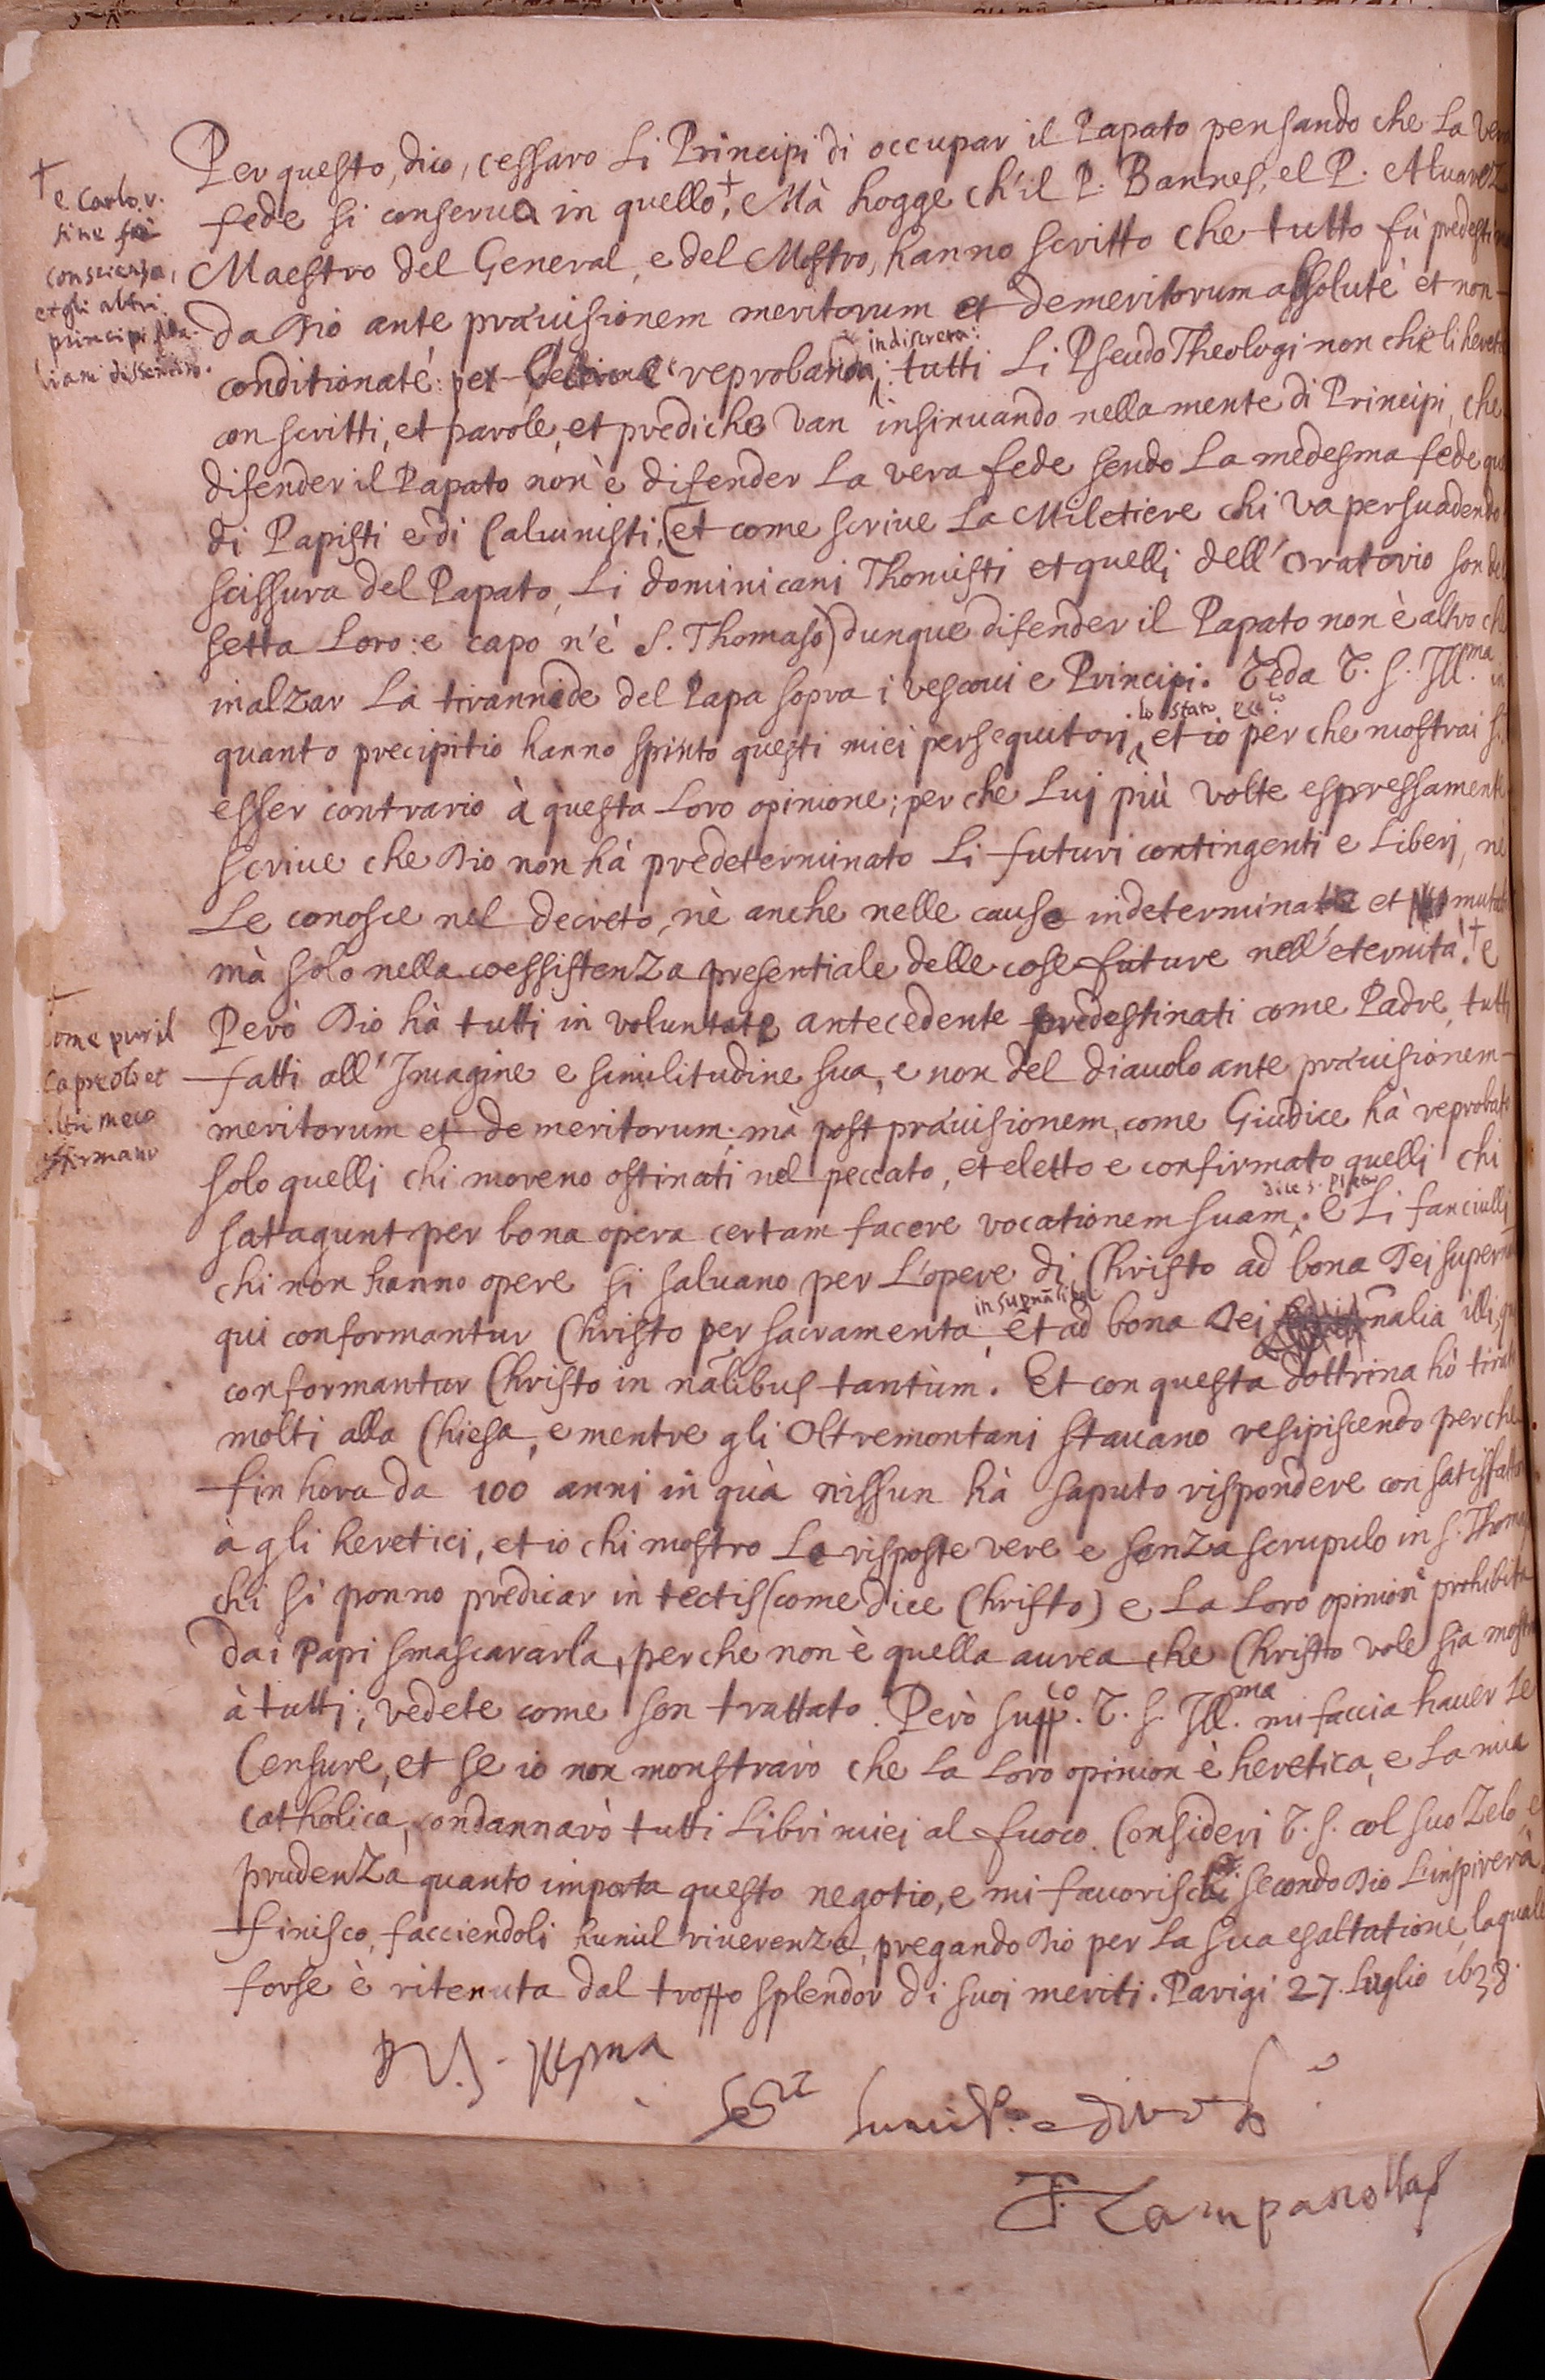 Per questo, dico, cessaro li Principi di occupar il Papato pensando che la vera
fede si conserva in quello,+ Mà hogge ch'il P. Bannes, el P. Alvarez
Maestro del General, e del Mostro, hanno scritto che tutto fù predesti
da Dio ante praeuisionem meritorum et demeritorum assolutè et non
conditionatè: reprobanda indiscreta: tutti li PseudoTheologi non che li hereti
con scritti, et parole, et prediche van insinuando nella mente di Principi, che
difender il Papato non è difender la vera fede sendo la medesma fede que
di Papisti e di Calvinisti, (et come scrive la Miletiere chi va persuadendo
scissura del Papato, li dominicani Thomisti et quelli dell'oratorio son de
setta loro: e capo n'è S. Thomaso) dunque difender il Papato non è altro ch
inalzar la tirannide del Papa sopra i vescovi e Principi. Veda V. S. Ill.ma in
quanto precipitio hanno spinto questi miei persequutori, lo stato et io per che mostrai S.
esser contrario à questa loro opinione; per che lui più volte espressamente
scrive che Dio non hà predeterminato li futuri contingenti e liberi, nè
le conosce nel decreto, nè anche nelle cause indeterminate et mutab
mà solo nella coessistenza presentiale delle cose future nell'eternità.+ e
Però Dio hà tutti in voluntate antecedente predestinati come Padre, tutti
fatti all'Imagine e similitudine sua, e non del diavolo ante praeuisionem
meritorum et demeritorum; mà post praeuisionem, come Giudice hà reprobato
solo quelli chi moreno ostinati nel peccato, et eletto e confirmato quelli chi
satagunt per bona opera certam facere vocationem suam, dice S. Pietro. e li fanciulli
chi non hanno opere si salvano per l'opere di Christo ad bona Dei supern
qui conformantur Christo per sacramenta, in supnālibus et ad bona Dei nālia illi, qui
conformantur Christo in nālibus tantùm. Et con questa dottrina hò tirato
molti alla Chiesa, e mentre gli Oltremontani stavano resipiscendo perche
fin hora da 100 anni in quà nissun hà saputo rispondere con satisfatt
à gli heretici, et io chi mostro le risposte vere e senza scrupulo in S. Thomaso
chi si ponno predicar in tectis (come dice Christo) e la loro opinion prohibita
dai Papi smascararla, perche non è quella aurea che Christo vole sia mostr
à tutti; vedete come son trattato. Però supp.co V. S. Ill.ma mi faccia haver le
Censure, et se io non monstrarò che la loro opinion è heretica, e la mia
catholica, condannarò tutti libri miei al fuoco. Consideri V. S. col suo zelo, e
prudenza quanto importa questo negotio, e mi favorisca secondo Dio l'inspirerà.
finisco, facciendoli humil riverenza, pregando Dio per la sua esaltatione, laquale
forse è ritenuta dal troppo splendor di suoi meriti. Parigi 27. luglio 1638.
D V.S. Illma
Ser.re humil.o e divot.o
F. T. Campanella
+
e Carlo. v.
sine
conscienza,
et gli altri
principi
liani dissentiro.
+
come pur il
Capreolo et
altri meco
affirmano